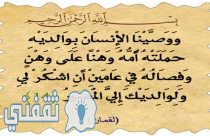 بسم الله الرحمن الرحيم
ووصينا الإنسان بوالديه
حملته أمه وهنا على وهن
وفصاله في عامين أن اشكر لي
ولوالديك إلي
(لقمان
ثقفني